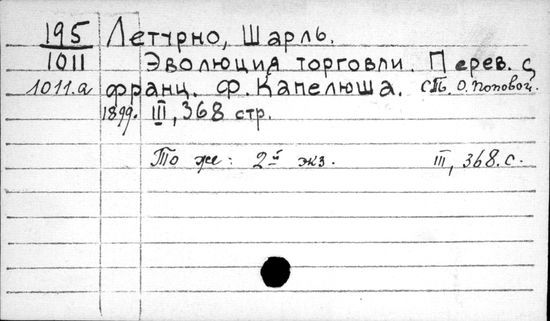 195 Летурно, Шарль.
1011 Эволюция торговли. Перев. с
1011.а франц. Ф. Капелюша. СПб. О. Поповой.
1899. III, 368 стр.
То же: 2й экз. III, 368. с.